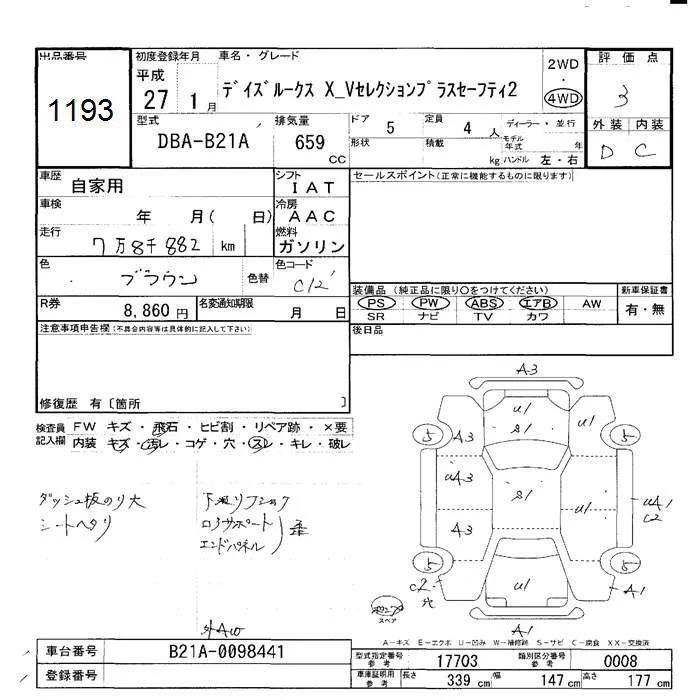 出品番号 初度登録年月 車名・グレード 2WD 評価点
1193 平成 27 1月 デイズルークス X_Vセレクションプラスセーフティ2 ・ 4WD 3
型式 排気量 ドア 5 定員 4人 ディーラー・並行 外装 内装
DBA-B21A 659 cc 形状 積載 kg モデル年式 年 ハンドル 左・右 D C
車歴 自家用 シフト IAT セールスポイント(正常に機能するものに限ります)
車検 年 月( 日) 冷房 AAC
走行 7万8千882 km 燃料 ガソリン
色 ブラウン 色替 色コード C12
R券 8,860円 名変通知期限 月 日
装備品 (純正品に限り○をつけてください) 新車保証書
PS PW ABS エアB AW 有・無
SR ナビ TV カワ
後日品
注意事項申告欄(不具合内容等は具体的に記入して下さい)
修復歴 有〔箇所 〕
検査員記入欄 FW キズ・飛石・ヒビ割・リペア跡・×要
内装 キズ・汚レ・コゲ・穴・スレ・キレ・破レ
ダッシュ板のり大
シートヘタリ
エンドパネル
外AW
A3
U1 U1
5 A3 S1 5
UA3 S1 UA1
C2
A3
5 5
C2 穴 U1 A1
スペア
A1
A-キズ E-エクボ U-凹み W-補修跡 S-サビ C-腐食 XX-交換済
車台番号 B21A-0098441
登録番号
型式指定番号 参考 17703 類別区分番号 参考 0008
車庫証明用 参考 長さ 339 cm 幅 147 cm 高さ 177 cm